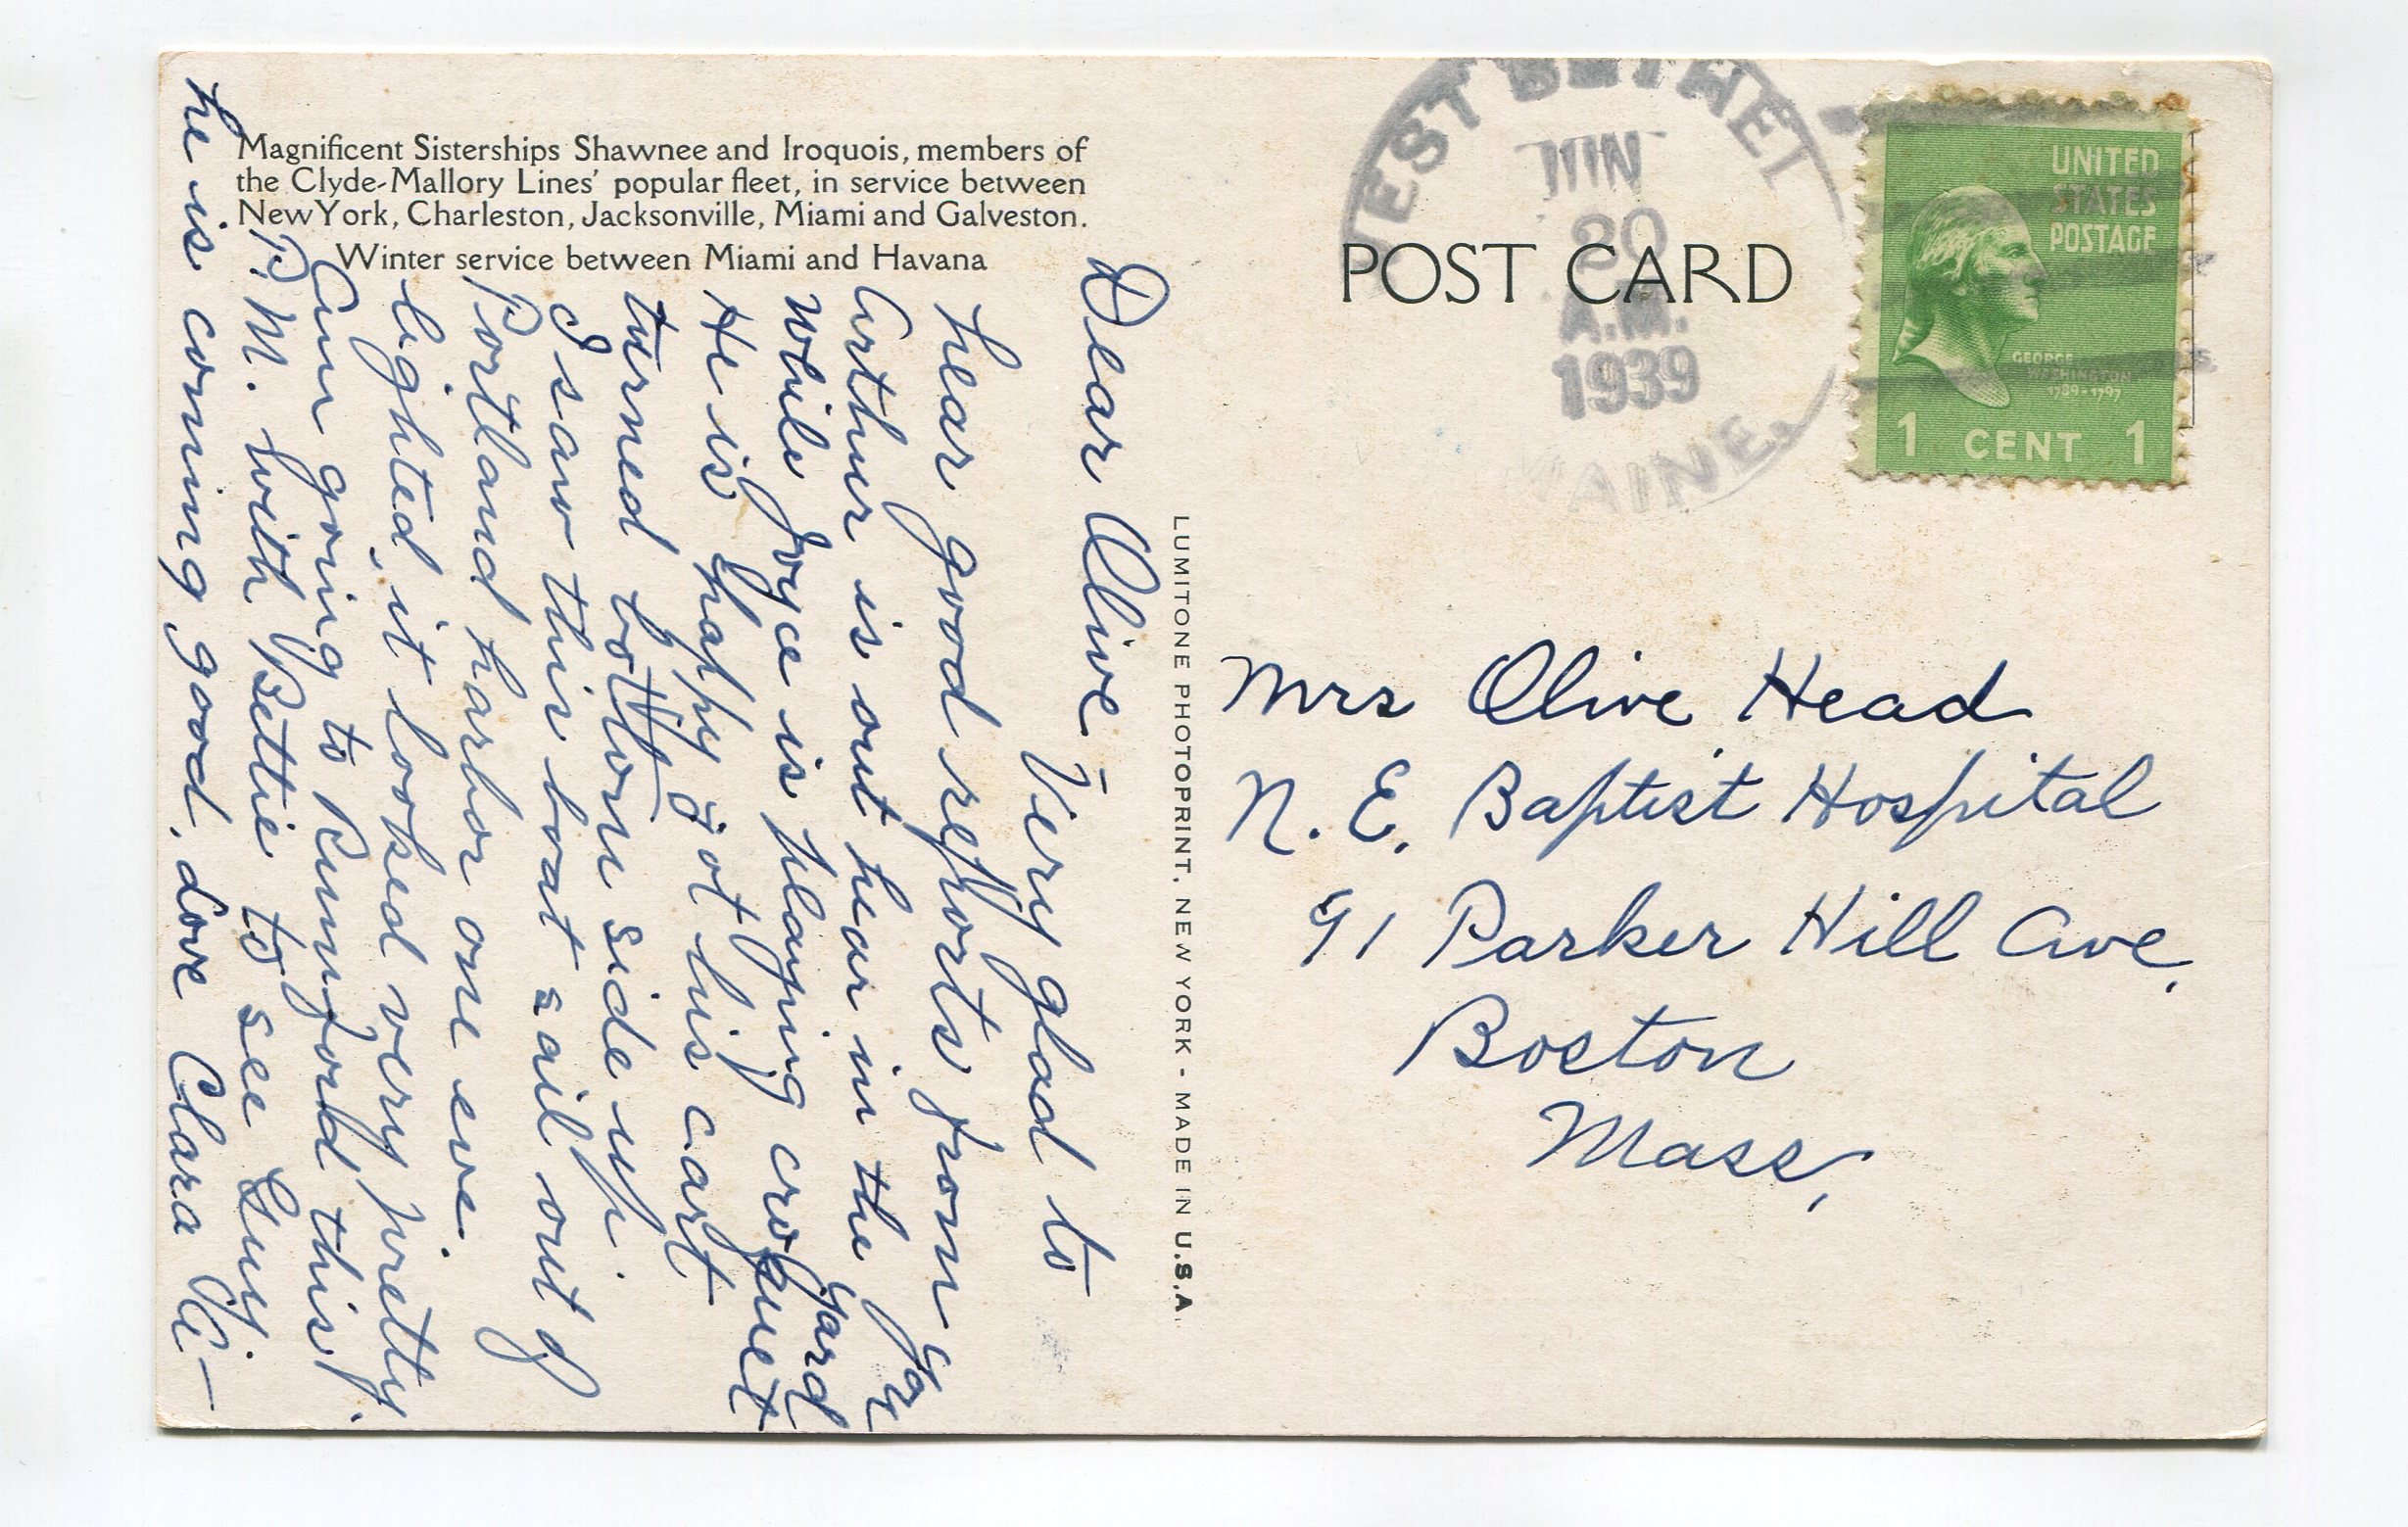 Magnificent Sisterships Shawnee and Iroquois, members of
the Clyde-Mallory Lines' popular fleet, in service between
New York, Charleston, Jacksonville, Miami and Galveston.
Winter service between Miami and Havana
Dear Olive - Very glad to
hear good reports from you
Arthur is out hear in the yard
while Joyce is playing croquet
He is happy. Got his cart
turned bottom side up.
I saw this boat sail out of
Portland harbor one eve.
lighted, it looked very pretty.
Am going to Rumford this
P.M. with Bettie to see Guy.
he is coming good. Love Clara
LUMITONE PHOTOPRINT, NEW YORK - MADE IN U.S.A.
POST CARD
WEST BETHEL
JUN
20
A.M.
1939
MAINE.
UNITED
STATES
POSTAGE
GEORGE
WASHINGTON
1789-1797
1 CENT 1
Mrs Olive Head
N. E. Baptist Hospital
91 Parker Hill Ave.
Boston
Mass.